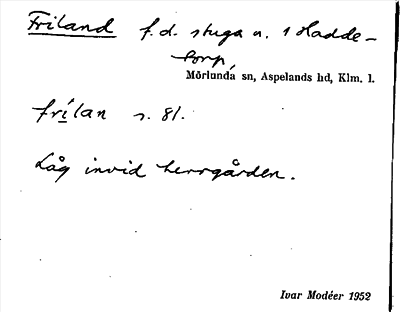 Friland f.d. stuga u. 1 Hadde-
torp,
Mörlunda sn, Aspelands hd, Klm. l.
frílan s. 81.
Låg invid herrgården.
Ivar Modéer 1952